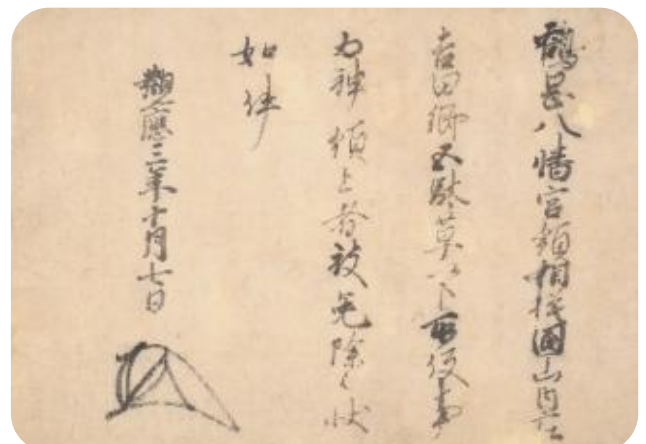 鶴岡八幡宮領相模國山内庄
吉田郷五駄草以下雨役事
為神領上者被免除之状
如件
觀應三年十月七日